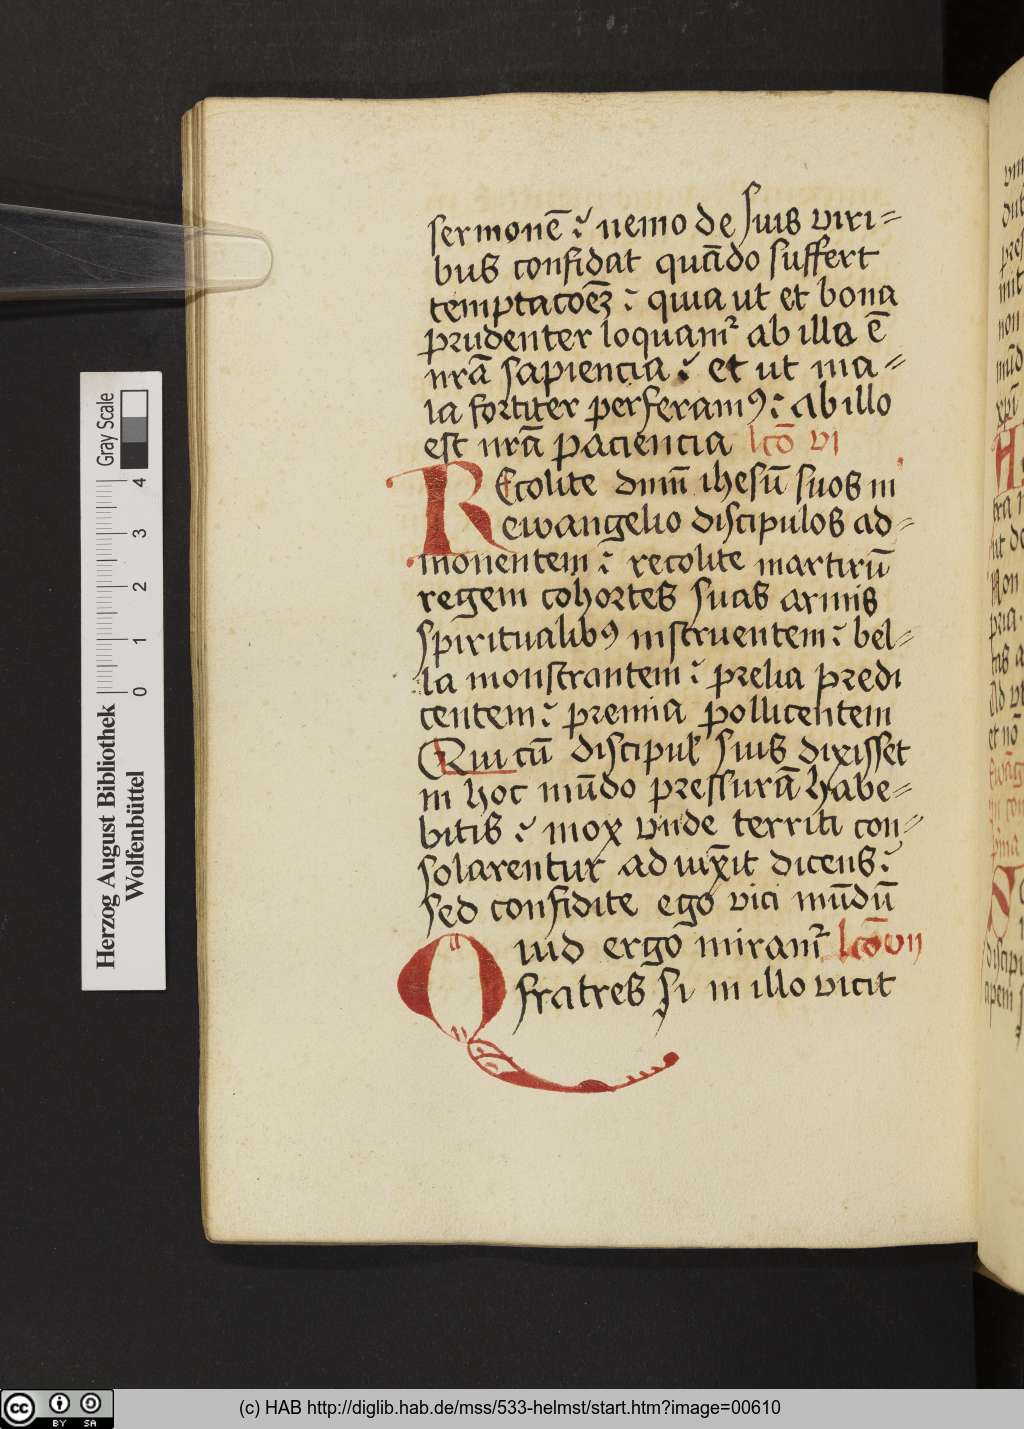 sermonē : nemo de suis viri=
bus confidat quādo suffert
temptacōēȝ : quia ut et bona
prudenter loquamr ab illa ē
nrā sapiencia : et ut ma=
la fortiter perferamꝰ : ab illo
est nrā paciencia lcō vi
REcolite dnm̄ ihesū suos in
ewangelio discipulos ad=
monentem : recolite martirū
regem cohortes suas armis
spiritualibꝰ instruentem : bel=
la monstrantem : prelia predi
centem : premia pollicentem
Qui cū discipul suis dixisset
in hoc mūdo pressurā habe=
bitis : mox vnde territi con=
solarentur adiux̄it dicens :
sed confidite ego vici mūdū
Quid ergo miramr lcō vij
fratres si in illo vicit
Herzog August Bibliothek
Wolfenbüttel
Gray Scale
0 1 2 3 4
cc BY SA
(c) HAB http://diglib.hab.de/mss/533-helmst/start.htm?image=00610